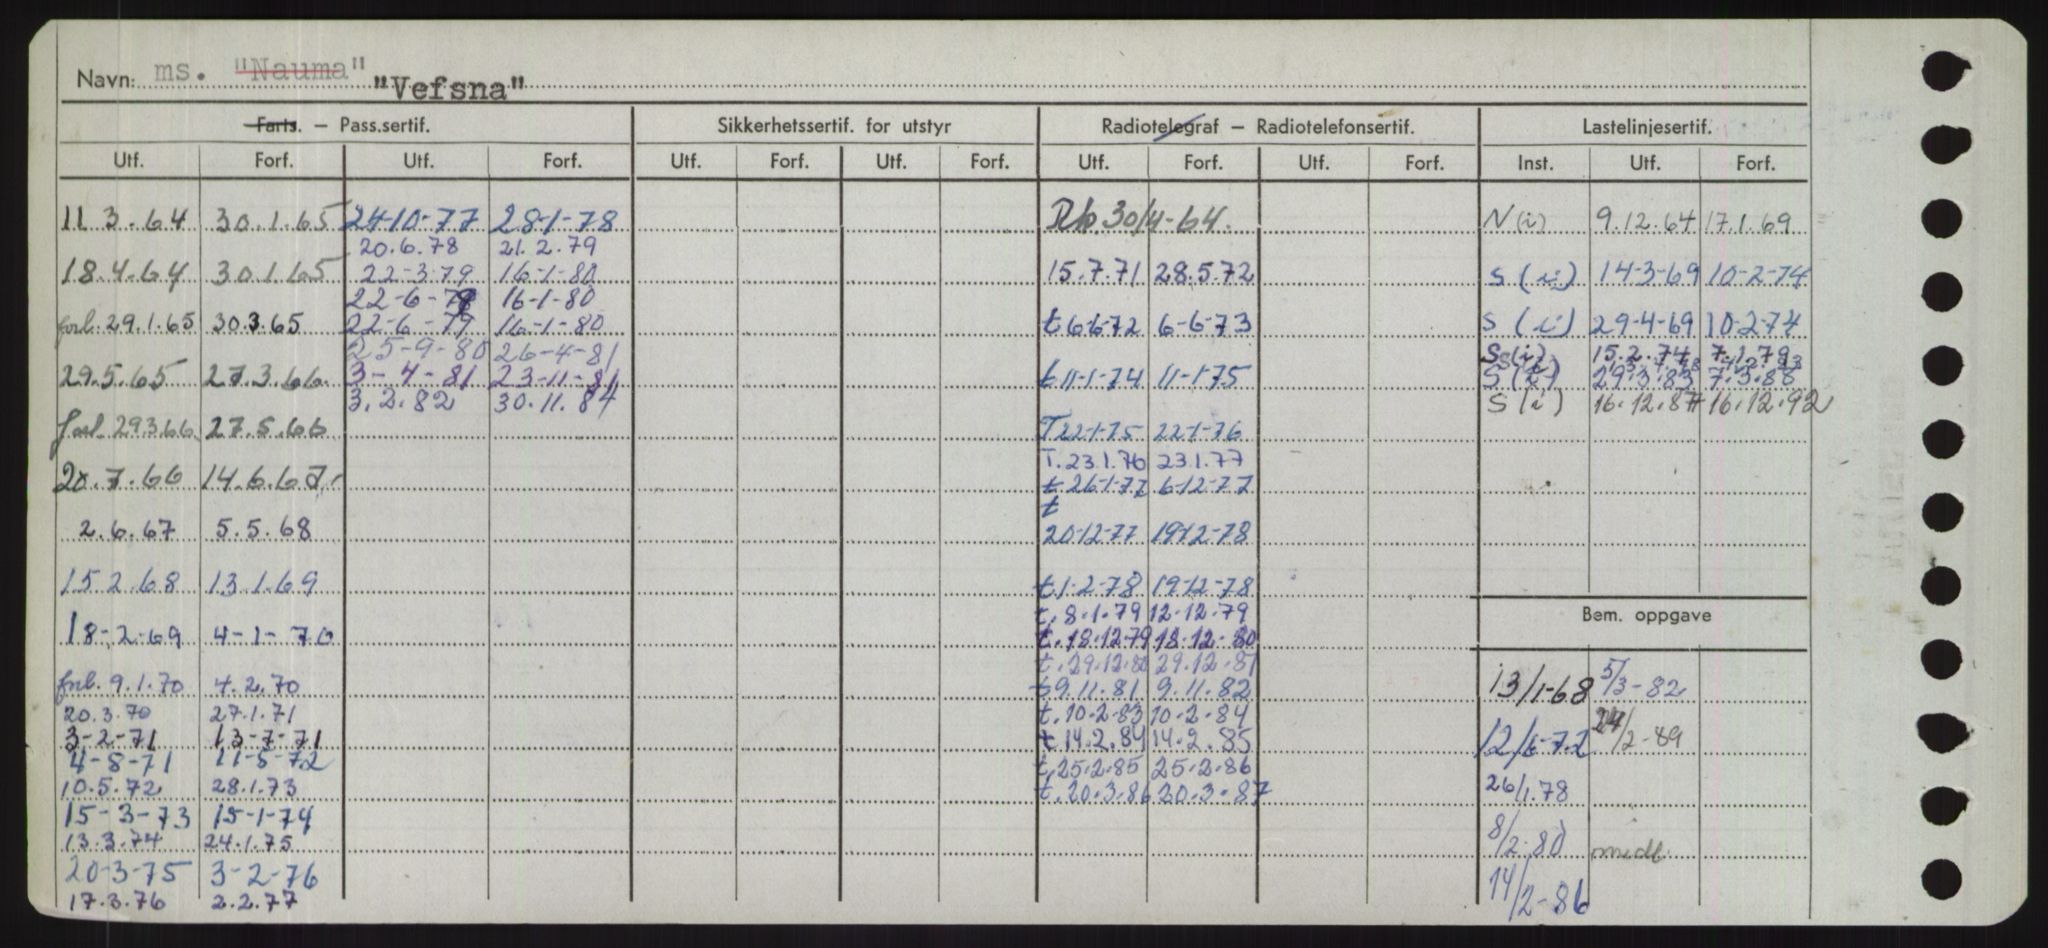 Navn: ms. "Nauma" "Vefsna"
Farts. – Pass.sertif.
Sikkerhetssertif. for utstyr
Radiotelegraf – Radiotelefonsertif.
Lastelinjesertif.
Utf. Forf. Utf. Forf. Utf. Forf. Utf. Forf. Utf. Forf. Utf. Forf. Inst. Utf. Forf.
11.3.64 30.1.65
18.4.64 30.1.65
forl. 29.1.65 30.3.65
29.5.65 27.3.66.
forl. 29.3.66 27.5.66
20.7.66 14.6.67
2.6.67 5.5.68
15.2.68 13.1.69
18-2-69 4-1-70
forl. 9.1.70 4.2.70
20.3.70 27.1.71
3-2-71 13-7-71
4-8-71 11-5-72
10.5.72 28.1.73
15-3-73 15-1-74
13.3.74 24.1.75
20-3-75 3-2-76
17.3.76 2.2.77
24-10-77 28-1-78
20.6.78 21.2.79
22-3-79 16-1-80
22-6-79 16-1-80
22-6-79 16-1-80
25-9-80 26-4-81
3-4-81 23-11-81
3.2.82 30.11.84
30/4-64.
15.7.71 28.5.72
t 6-6-72 6-6-73
t 11-1-74 11-1-75
T 22-1-75 22-1-76
T. 23.1.76 23.1.77
t 26-1-77 6-12-77
t
20-12-77 19-12-78
t. 1-2-78 19-12-78
t. 8.1.79 12.12.79
t. 18.12.79 18.12.80
t. 29.12.80 29.12.81
t 9.11.81 9.11.82
t. 10.2.83 10.2.84
t 14.2.84 14.2.85
t. 25.2.85 25.2.86
t. 20.3.86 20.3.87
N (i) 9.12.64 17.1.69
S (i) 14-3-69 10-2-74
S (i) 29-4-69 10.2.74
S (i) 15.2.74 7.1.79
S (i)
S (i) 29.3.83 7.3.88
S (i) 16.12.87 16.12.92
Bem. oppgave
13/1-68 5/3-82
12/6-72 24/2-89
26/1.78
8/2 80 midl.
14/2-86